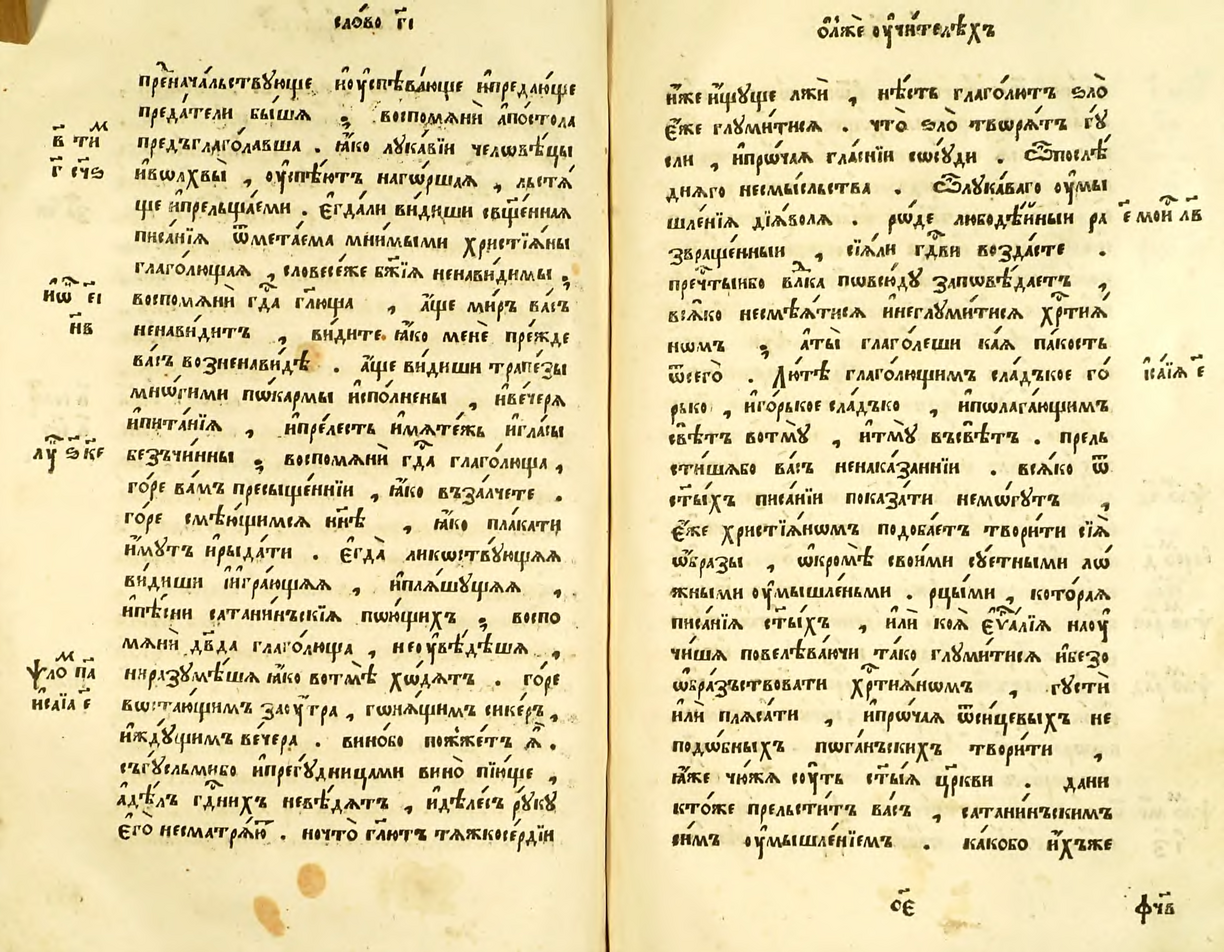 сло́во г҃і
пре́нача́льствующе нѹспѣва́юще ипредаю́ще
преда́тели бы́шѧ ; воспомѧнѝ апо́стола
в҃ тим
предъглаго́лавша . ꙗ҆́ко лꙋка́вїи человѣ́цы
г҃ сч҃ѕ
ивѡлхвы̀ , ѹ҆спѣ́ютъ наго́ршаѧ , льстѧ́
ще ипрельща́еми . є҆гда́ли ви́диши сщ҃е́ннаѧ
писа́нїѧ ѿмета́ема мни́мыми христїѧ́ны
глаго́лющаѧ , словесе́же бж҃їѧ ненави́димы ;
и҆ѡ҃ е҃і
воспомѧнѝ гд҃а гл҃юща , а҆́ще ми́ръ ва́съ
н҃в
ненави́дитъ , ви́дите ꙗ҆́ко менѐ пре́жде
ва́съ возненави́дѣ . а҆́ще ви́диши трапе́зы
мно́гими пѡкармы̀ и҆спо́лнены , ивече́рѧ
ипита́нїѧ , ипре́лесть имѧте́жь игла́сы
лꙋ҃ ѕ҃ к҃е
безъчи́нны ; воспомѧнѝ гд҃а глаго́люща ,
го́ре ва́мъ пресыще́ннїи , ꙗ҆́ко възалче́те .
го́ре смѣю́щимсѧ нн҃ѣ , ꙗ҆́ко пла́кати
и҆́мꙋтъ ирыда́ти . є҆гда̀ ликѡствꙋ́ющаѧ
ви́диши іигра́ющаѧ , ипла́шꙋщаѧ ,
ипѣ́сни сатани́нъскїѧ пѡю́щихъ ; воспо
мѧнѝ дв҃да глаго́люща , неѹвѣ́дѣшѧ ,
ѱло́м п҃а
ниразꙋмѣ́шѧ ꙗ҆́ко вотмѣ̀ хо́дѧтъ . го́ре
и҆са́їа е҃
вѡстаю́щимъ заѹ́тра , гонѧ́щимъ сике́ръ ,
иждꙋ́щимъ ве́чера . вино́бо пожже́тъ ѧ҆̀ .
съгꙋсльмибо ипрегꙋдни́цами вино̀ пїю́ще ,
адѣ́лъ гд҃нихъ невѣ́дѧтъ , идѣ́лесъ рꙋкꙋ̀
є҆гѡ̀ несматрѧ́ютъ . ночто̀ гл҃ютъ тѧжкосе́рдїи
о҆лже ѹ҆чи́телѣхъ
и҆́же и҆́щꙋще лжѝ , нѣ́сть глаго́лютъ ѕло̀
є҆́же глꙋми́тисѧ . что̀ ѕло̀ творѧ́тъ гꙋ́
сли , ипро́чаѧ гла́снїи сѡсꙋ́ди . ѿпослѣ́
днѧго несмы́сльства . ѿлꙋка́ваго ѹ҆мы
шле́нїѧ дїѧ́вола . ро́де любодѣ́йныи ра
є҃ мо́й л҃в
звраще́нныи , сїѧ́ли гд҃ви воздастѐ .
преч҃тыибо вл҃ка пѡвсю́дꙋ заповѣ́даетъ ,
всѧ́ко несмѣѧ́тисѧ инеглꙋми́тисѧ хр҃тиѧ́
нѡмъ ; аты̀ глаго́леши ка́ѧ па́кость
ѿсего̀ . Лю́тѣ глаго́лющимъ сла́дъкое го́
и҆са́їѧ е҃
рько , иго́рькое сла́дъко , ипѡлага́ющимъ
свѣ́тъ вотмꙋ̀ , итмꙋ̀ въсвѣ́тъ . прель
сти́шабо ва́съ ненака́заннїи . всѧ́ко ѿ
ст҃ы́хъ писа́нїи показа́ти немо́гꙋтъ ,
є҆́же христїѧ́нѡмъ подоба́етъ твори́ти сїѧ̀
ѡ҆́бразы , ѡкромѣ̀ свои́ми сꙋ́етными ло́
жными ѹ҆мышле́ньми . рцы́ми , кото́раѧ
писа́нїѧ ст҃ы́хъ , и҆лѝ ко́ѧ є҆ѵ҃алїѧ наѹ
чи́шѧ повелѣва́ючи та́ко глꙋми́тисѧ ибезо
ѡ҆бра́зъствовати хр҃тиѧ́нѡмъ , гꙋстѝ
и҆лѝ плѧса́ти , ипро́чаѧ ѿси́цевыхъ не
подо́бныхъ пога́нъскихъ твори́ти ,
ꙗ҆́же чю́жѧ сꙋ́ть ст҃ы́ѧ цр҃кви . дани
кто́же прельсти́тъ ва́съ , сатани́нъскимъ
си́мъ ѹ҆мышле́нїемъ . ка́кобо и҆́хъже
с҃е
ф҃чв